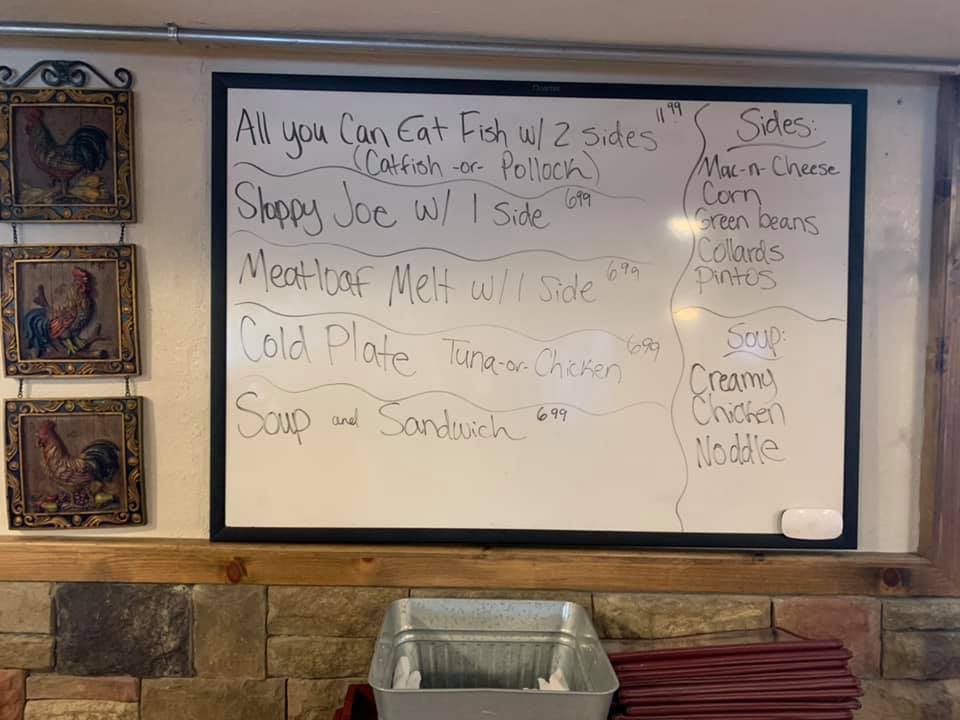 All you Can Eat Fish w/ 2 sides 11.99
(Catfish -or- Pollock)
Sloppy Joe w/ 1 side 6.99
Meatloaf Melt w/ 1 Side 6.99
Cold Plate Tuna-or-Chicken 6.99
Soup and Sandwich 6.99
Sides:
Mac-n-Cheese
Corn
Green beans
Collards
Pintos
Soup:
Creamy
Chicken
Noddle